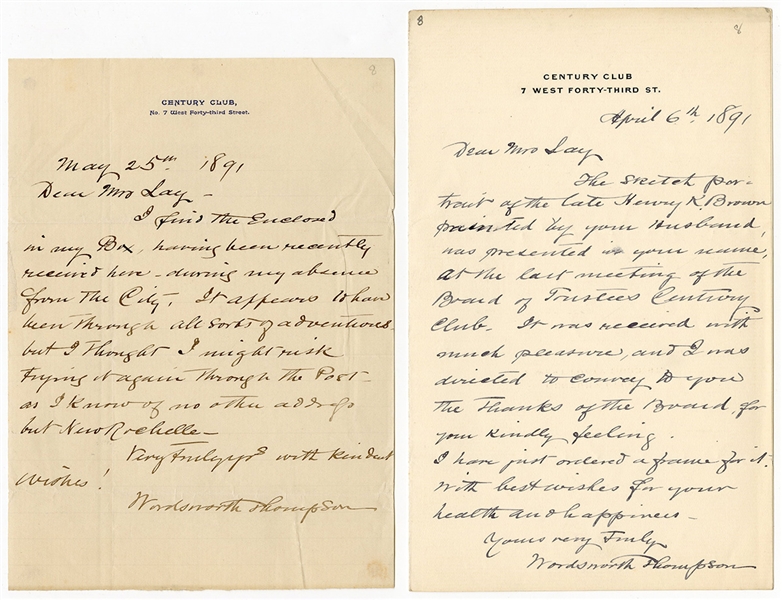 8
CENTURY CLUB,
No. 7 West Forty-third Street.
May 25th 1891
Dear Mrs Lay -
I find the Enclosed
in my Box, having been recently
received here - during my absence
from the City. It appears to have
been through all sorts of adventures -
but I thought I might risk
trying it again through the Post -
as I know of no other address
but New Rochelle -
Very truly yrs with kindest
wishes!
Wordsworth Thompson
8
8
CENTURY CLUB
7 WEST FORTY-THIRD ST.
April 6th, 1891
Dear Mrs Lay
The Sketch por-
trait of the late Henry K. Brown
painted by your Husband,
was presented in your name,
at the last meeting of the
Board of Trustees Century
Club. It was received with
much pleasure, and I was
directed to convey to you
the thanks of the Board, for
your kindly feeling.
I have just ordered a frame for it.
With best wishes for your
health and happiness -
Yours very truly
Wordsworth Thompson